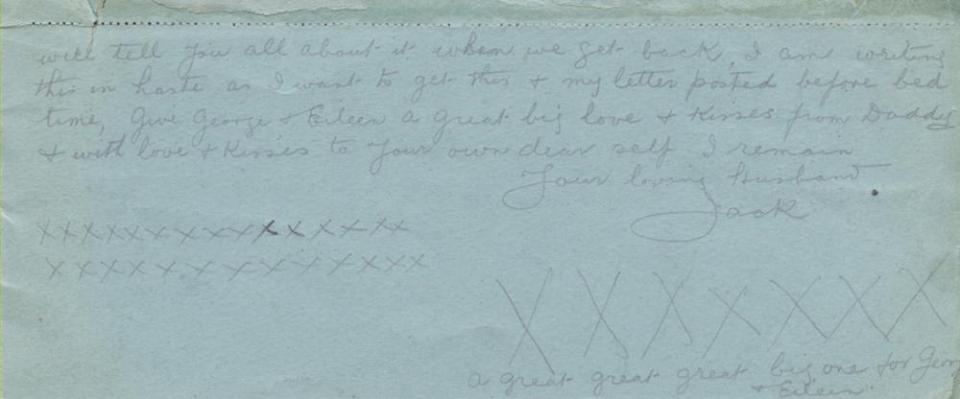 will tell you all about it when we get back, I am writing
this in haste as I want to get this + my letter posted before bed
time, Give George + Eileen a great big love + Kisses from Daddy
+ with love + Kisses to your own dear self I remain
Your loving Husband
Jack
XXXXXXXXXXXXXXXXX
XXXXXXXXXXXXXXX
XXXXXXX
A great great great big one for Geor
+ Eileen